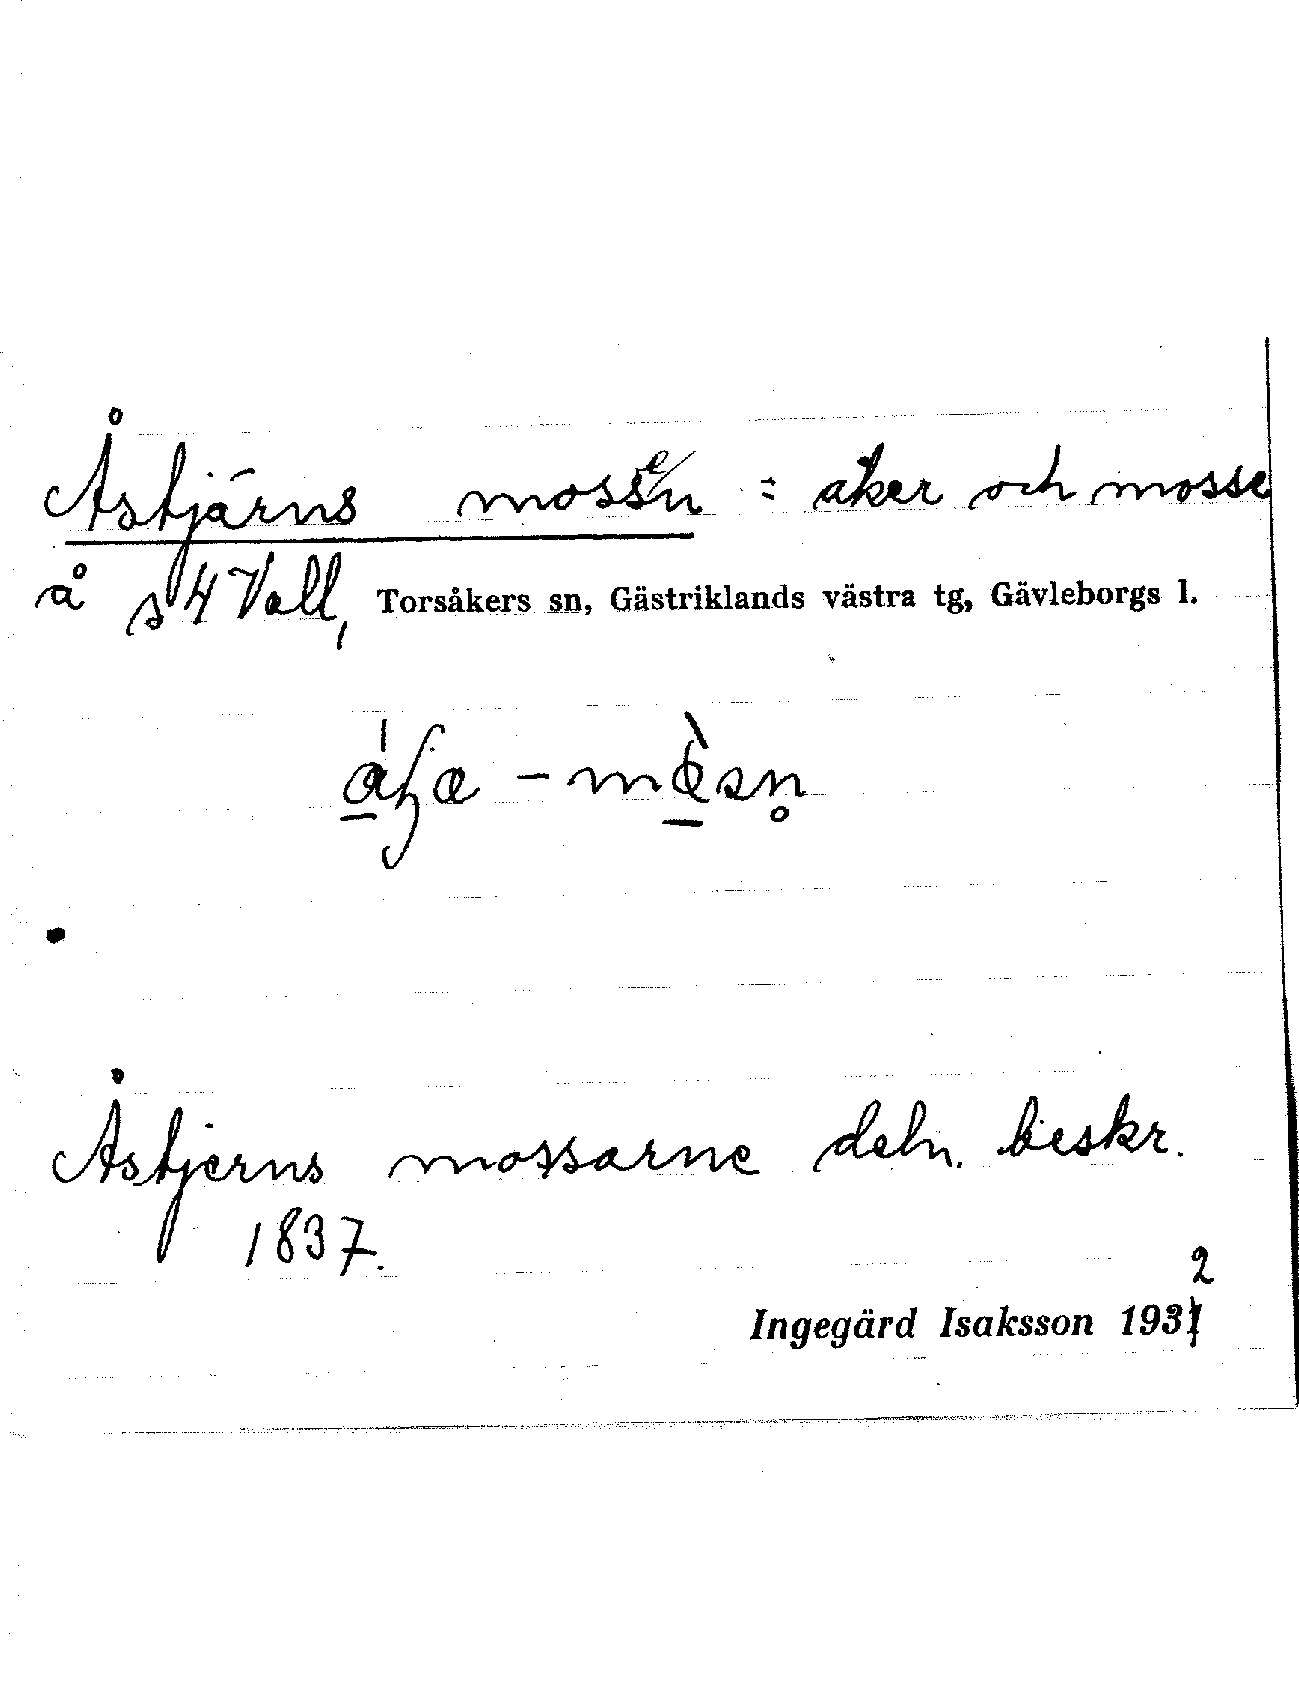 Åstjärns mossen = åker och mosse
å s 4 Vall, Torsåkers sn, Gästriklands västra tg, Gävleborgs l.
Åstjerns mossarne deln. beskr.
1837.
2
Ingegärd Isaksson 1931